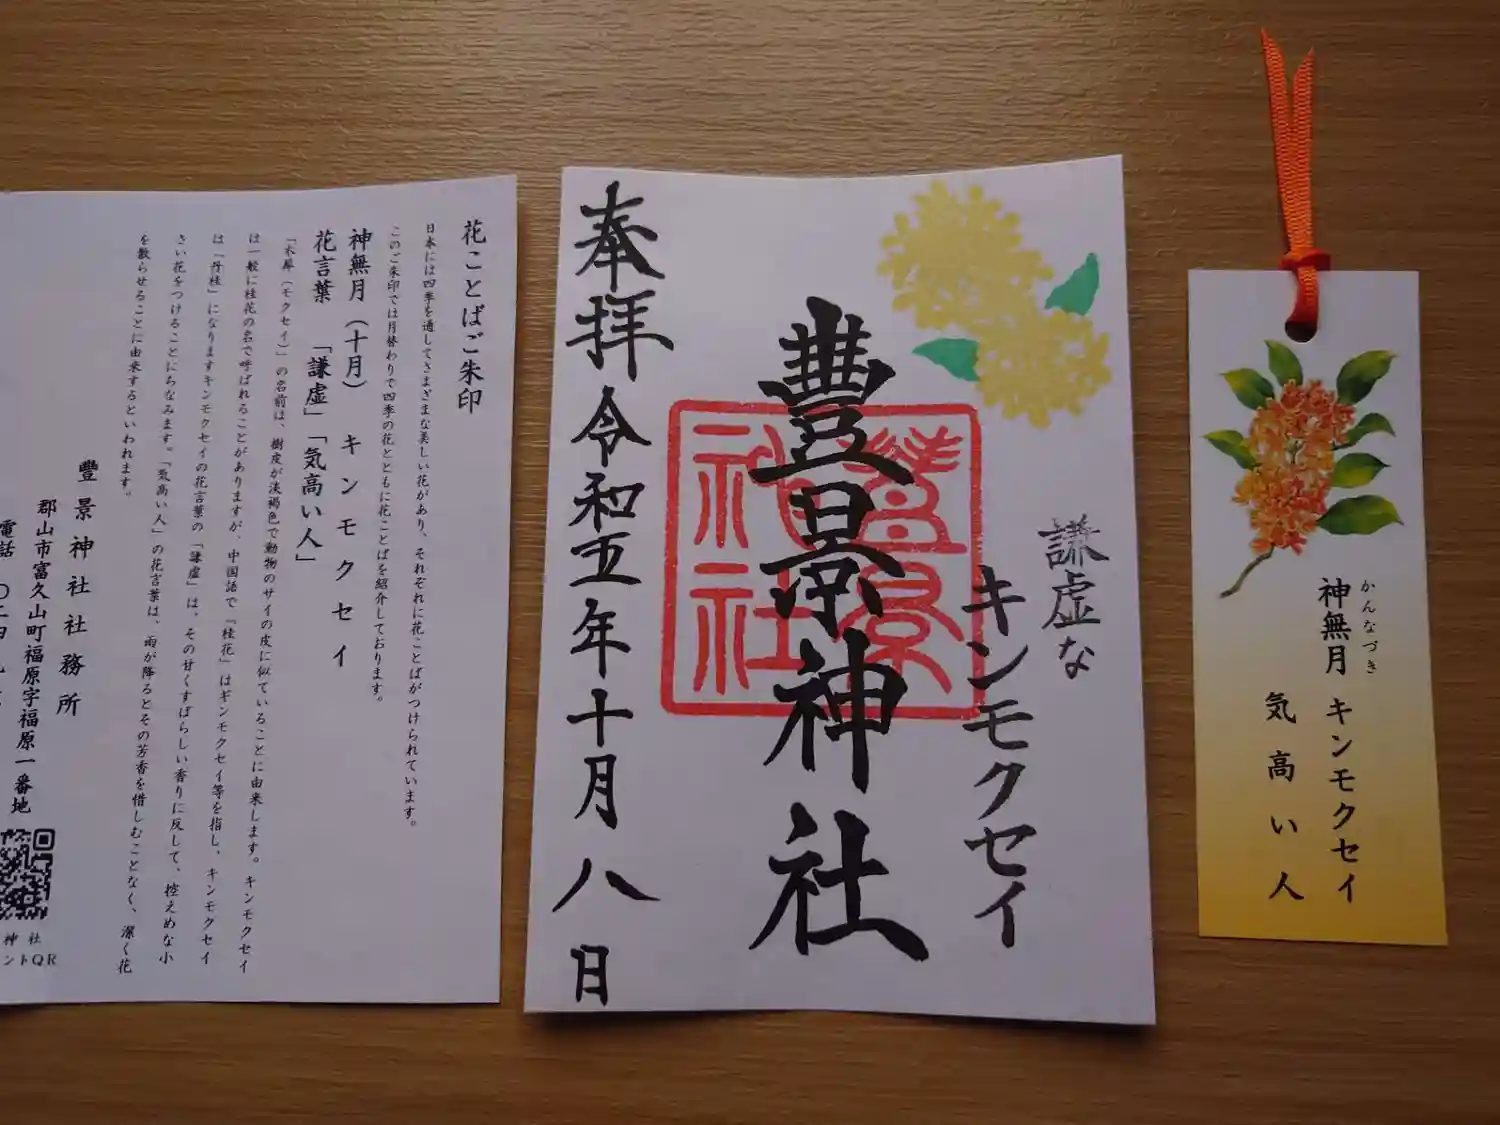 花ことばご朱印
日本には四季を通してさまざまな美しい花があり、それぞれに花ことばがつけられています。
このご朱印では月替わりで四季の花とともに花ことばを紹介しております。
神無月(十月) キンモクセイ
花言葉 「謙虚」「気高い人」
「木犀(モクセイ)」の名前は、樹皮が淡褐色で動物のサイの皮に似ていることに由来します。キンモクセイ
は一般に桂花の名で呼ばれることがありますが、中国語で「桂花」はギンモクセイ等を指し、キンモクセイ
は「丹桂」になりますキンモクセイの花言葉の「謙虚」は、その甘くすばらしい香りに反して、控えめな小
さい花をつけることにちなみます。「気高い人」の花言葉は、雨が降るとその芳香を惜しむことなく、潔く花
を散らせることに由来するといわれます。
豐景神社社務所
郡山市富久山町福原字福原一番地
電話 〇二四
神社
ントQR
謙虚な
キンモクセイ
豐景神社
豐景
神社
奉拝 令和五年十月八日
かんなづき
神無月 キンモクセイ
気高い人